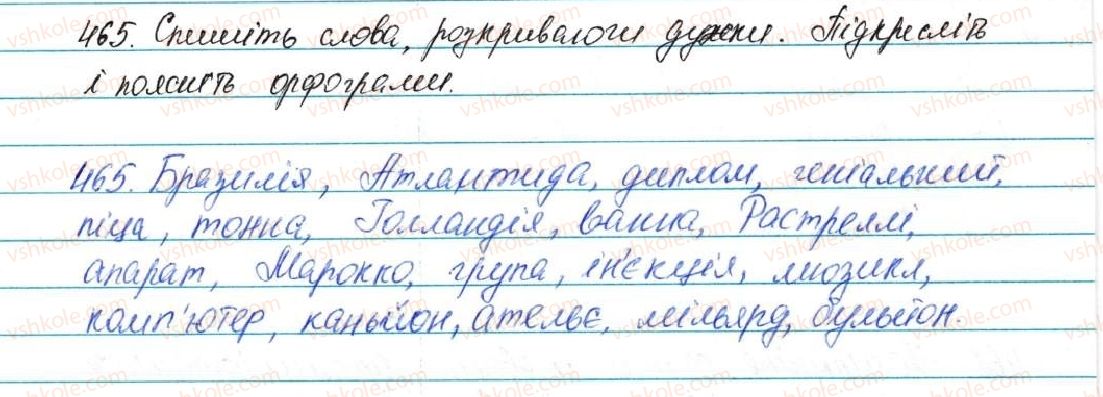 465. Спишіть слова, розкриваючи дужки. Підкресліть
і поясніть орфограми.
465. Бразилія, Атлантида, диплом, геніальний,
піца, тонна, Голландія, ванна, Растреллі,
апарат, Марокко, група, ін'єкція, мюзикл,
комп'ютер, каньйон, ательє, мільярд, бульйон.